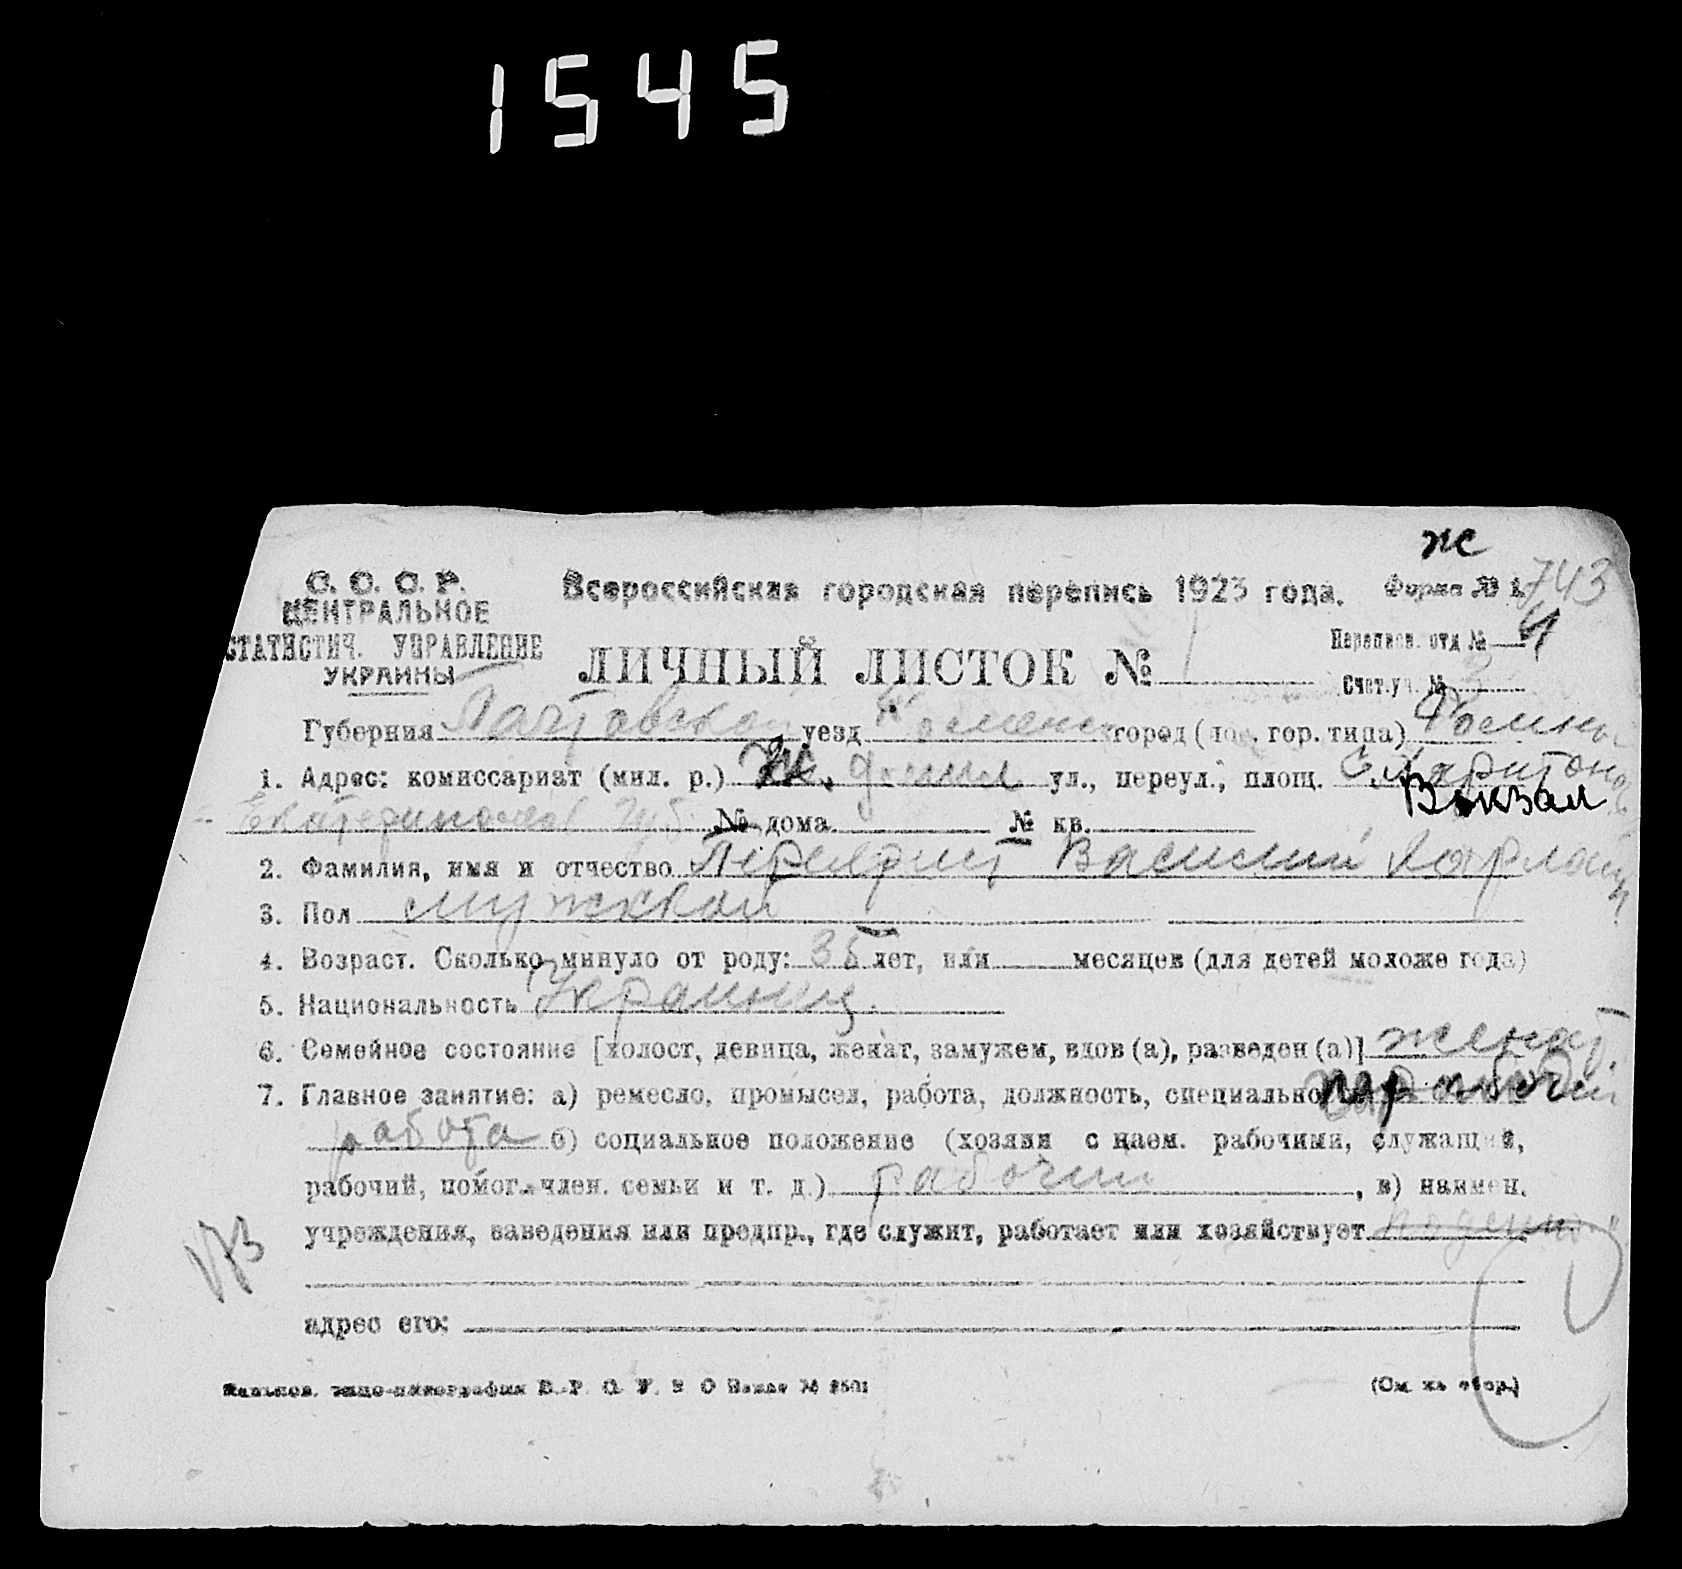 1545
же
С. С. С. Р.
ЦЕНТРАЛЬНОЕ
СТАТИСТИЧ. УПРАВЛЕНИЕ
УКРАИНЫ
Всероссийская городская перепись 1923 года.
Форма № 1.
743
Переписн. отд № 4
ЛИЧНЫЙ ЛИСТОК № 1
Счет.уч. № 3
Губерния Полтовская уезд Роменск город (пос. гор. типа) Ромны
1. Адрес: комиссариат (мил. р.) ул., переул., площ.
Вокзал
Екатеринослав Губ. № дома № кв.
2. Фамилия, имя и отчество Василий
3. Пол мужской
4. Возраст. Сколько минуло от роду: 35 лет, или месяцев (для детей моложе года)
5. Национальность Украинец.
6. Семейное состояние [холост, девица, женат, замужем, вдов (а), разведен (а)] женат.
7. Главное занятие: а) ремесло, промысел, работа, должность, специальность
работа б) социальное положение (хозяин с наем. рабочими, служащий,
рабочий, помог. член. семьи и т. д.) рабочий, в) наимен.
учреждения, заведения или предпр., где служит, работает или хозяйствует
173
адрес его:
(См. на обор.)